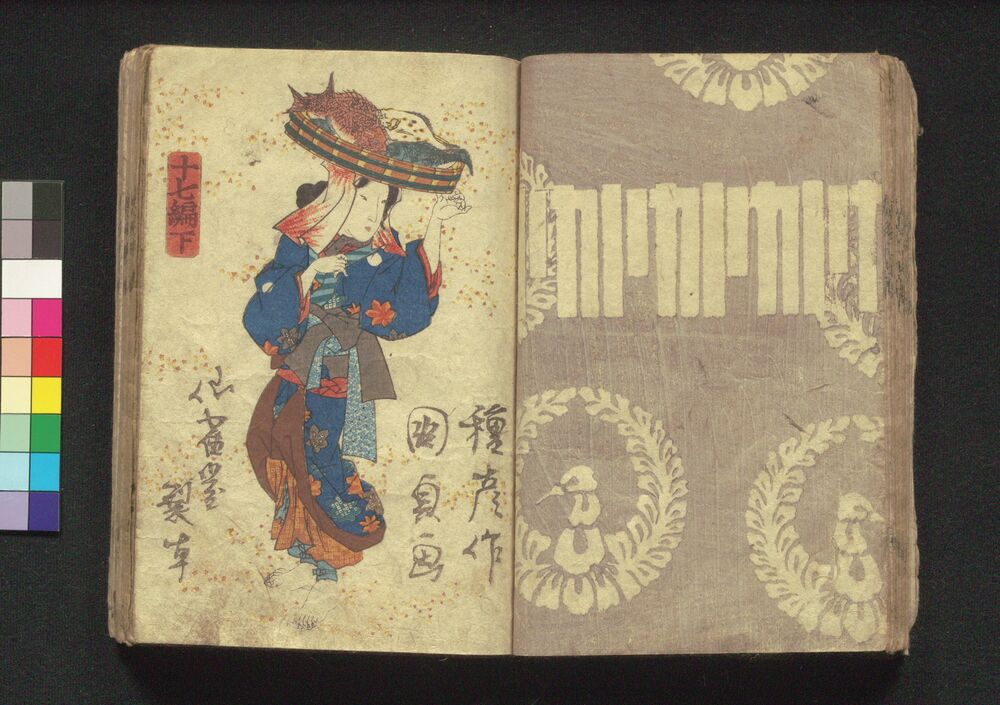 十七編下
種彦作
國貞画
仙鶴堂
製本